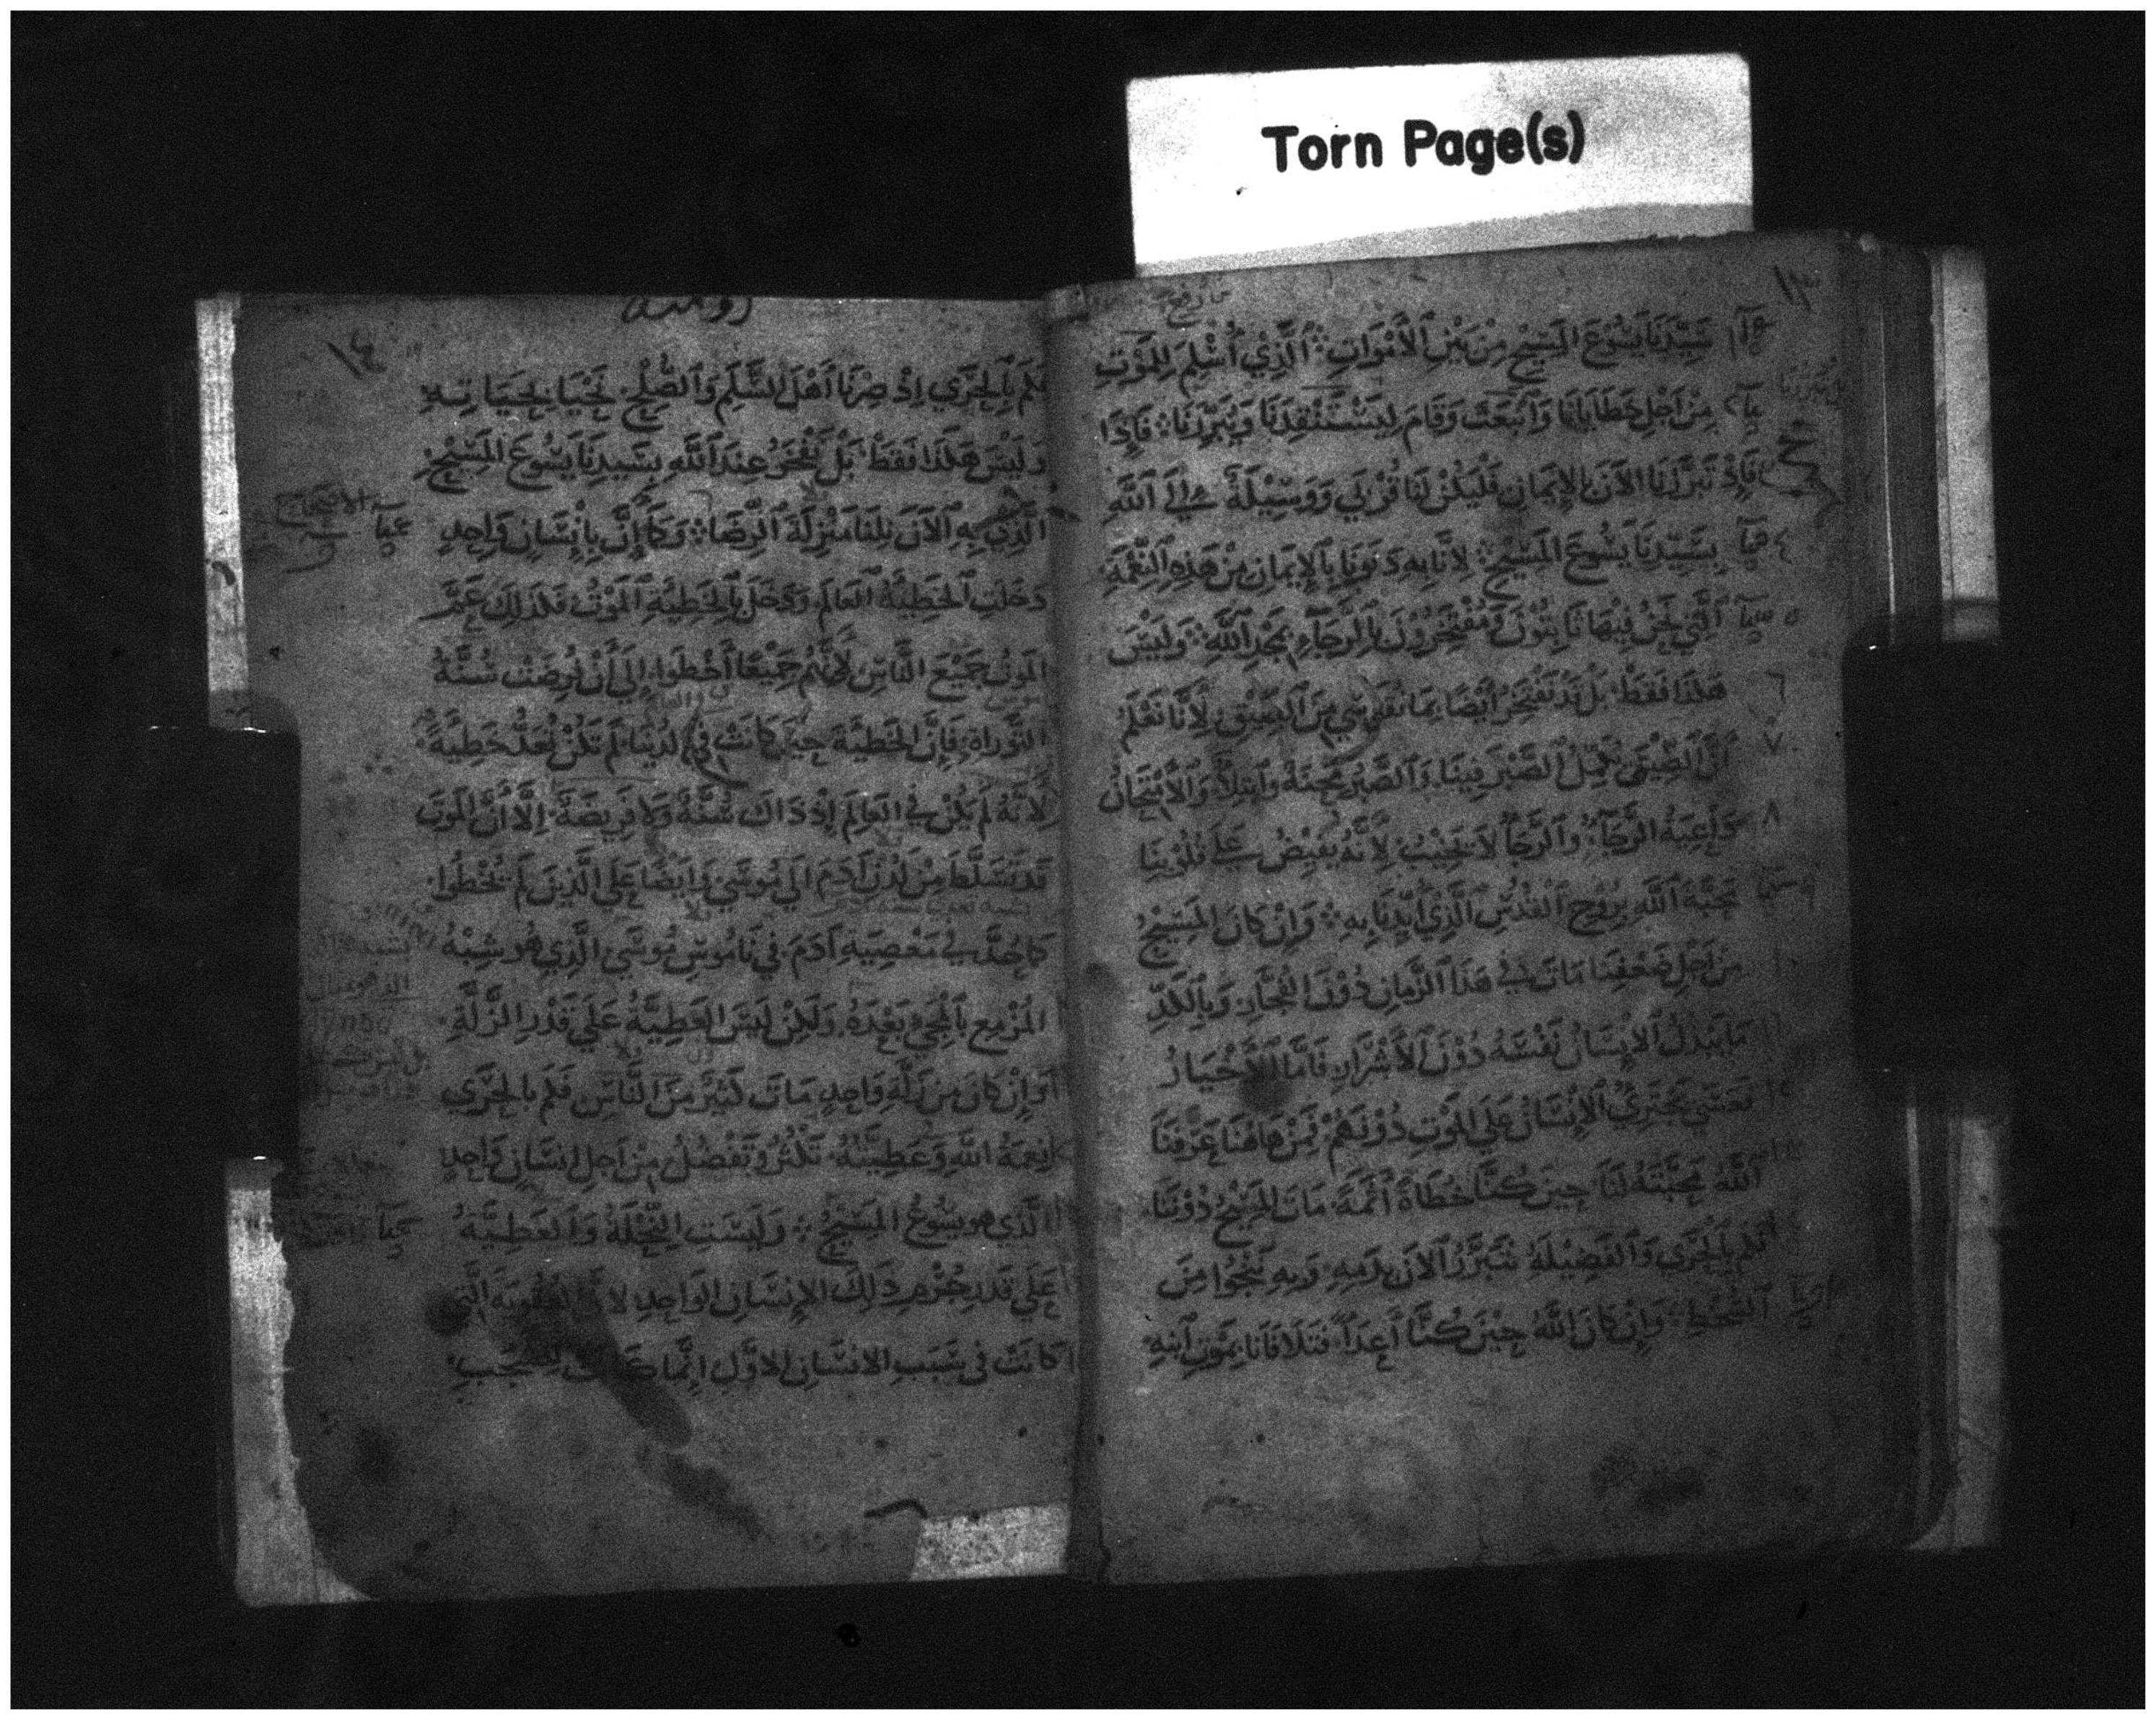 Torn Page(s)
١٣
سَيِّدَنَا يَسُوْعَ المَسِيْحِ مِنْ بَيْنِ الأَمْوَاتِ ۞ الَّذِي أُسْلِمَ لِلْمَوْتِ
مِنْ اَجْلِ خَطَايَانَا وَانْبَعَثَ وَقَامَ لِيَسْتَنْقِدَنَا وَيُبَرِّرَنَا ۞ فَاِذَا
فَاِذْ تَبَرَّرْنَا الآنَ بِالإِيمَانِ فَلْيَكُنْ لَنَا قُرْبَي وَوَسِيْلَةً إِلَى اللَّهِ
٤ بِسَيِّدِنَا يَسُوعَ المَسِيْحِ ۞ لِأَنَّا بِهِ دَنَوْنَا بِالإِيمَانِ مِنْ هَذِهِ النِّعْمَةِ
٥ الَّتِي نَحْنُ فِيْهَا ثَابِتُوْنَ وَمُفْتَخِرُوْنَ بِالرَّجَاءِ بِمَجْدِ اللَّهِ ۞ وَلَيْسَ
٦ هَكَذَا فَقَطْ بَلْ قَدْ نَفْتَخِرُ أَيْضًا بِمَا نُقَاسِي مِنَ الضِّيْقِ لِأَنَّا نَعْلَمُ
٧ أَنَّ الضِّيْقَ يُكَمِّلُ الصَّبْرَ فِيْنَا وَالصَّبْرُ مِحْنَةٌ وَابْتِلَاءٌ وَالْاِمْتِحَانُ
٨ دَاعِيَةُ الرَّجَاءِ وَالرَّجَاءُ لَا يَخِيْبُ لِأَنَّهُ يَفِيْضُ عَلَى قُلُوْبِنَا
٩ مَحَبَّةَ اللَّهِ بِرُوْحِ القُدُسِ الَّذِي أَيَّدَنَا بِهِ ۞ وَإِنْ كَانَ المَسِيْحُ
مِنْ اَجْلِ ضَعْفِنَا مَاتَ فِي هَذَا الزَّمَانِ دُوْنَ الفُجَّارِ وَبِالكَدِّ
مَا يَبْذُلُ الإِنْسَانُ نَفْسَهُ دُوْنَ الأَشْرَارِ فَأَمَّا الأَخْيَارُ
فَعَسَى يَجْتَرِئُ الإِنْسَانُ عَلَى المَوْتِ دُوْنَهُمْ فَمِنْ هَاهُنَا عَرَّفَنَا
اللَّهُ مَحَبَّتَهُ لَنَا حِيْنَ كُنَّا خُطَاةً أَثَمَةً مَاتَ المَسِيْحُ دُوْنَنَا
فَكَمْ بِالْحَرِي وَالفَضِيْلَةِ نَتَبَرَّرُ الآنَ بِدَمِهِ وَبِهِ نَنْجُوا مِنَ
السُّخْطِ ۞ وَإِنْ كَانَ اللَّهُ حِيْنَ كُنَّا أَعْدَاءً فَتَلَافَانَا بِمَوْتِ ابْنِهِ
١٤
فَكَمْ بِالْحَرِي اِذْ صِرْنَا أَهْلَ السَّلَمِ وَالصُّلْحِ نَحْيَا بِحَيَاتِهِ
وَلَيْسَ هَكَذَا فَقَطْ بَلْ نَفْخَرُ عِنْدَ اللَّهِ بِسَيِّدِنَا يَسُوْعَ المَسِيْحِ
الَّذِي بِهِ الآنَ نِلْنَا مَنْزِلَةَ الرِّضَا ۞ وَكَمَا إِنَّ بِإِنْسَانٍ وَاحِدٍ
دَخَلَتِ الخَطِيَّةُ العَالَمَ وَدَخَلَ بِالْخَطِيَّةِ المَوْتُ فَكَذَلِكَ عَمَّ
المَوْتُ جَمِيْعَ النَّاسِ لِأَنَّهُمْ جَمِيْعًا أَخْطَوا إِلَى أَنْ فُرِضَتْ سُنَّةُ
التَّوْرَاةِ فَإِنَّ الخَطِيَّةَ حِيْنَ كَانَتْ فِي الدُّنْيَا لَمْ تَكُنْ تُعَدُّ خَطِيَّةً
لِأَنَّهُ لَمْ يَكُنْ فِي العَالَمِ إِذْ ذَاكَ سُنَّةٌ وَلَا فَرِيْضَةٌ اِلَّا أَنَّ المَوْتَ
قَدْ تَسَلَّطَ مِنْ لَدُنْ آدَمَ اِلَى مُوْسَي وَأَيْضًا عَلَى الَّذِيْنَ لَمْ يُخْطُوا
كَمَا حُدَّ فِي مَعْصِيَةِ آدَمَ فِي نَامُوْسِ مُوْسَي الَّذِي هُو شِبْهُ
المُزْمِعِ بِالْمَجِيْءِ بَعْدَهُ وَلَكِنْ لَيْسَ العَطِيَّةُ عَلَى قَدْرِ الزَّلَّةِ
اَوَ إِنْ كَانَ مِنْ زَلَّةِ وَاحِدٍ مَاتَ كَثِيْرٌ مِنَ النَّاسِ فَكَمْ بِالْحَرِي
نِعْمَةُ اللَّهِ وَعَطِيَّتُهُ تَكْثُرُ وَتَفْضُلُ مِنْ اَجْلِ اِنْسَانٍ وَاحِدٍ
الَّذِي هو يَسُوْعُ المَسِيْحُ ۞ وَلَيْسَتِ النِّحْلَةُ وَالعَطِيَّةُ
عَلَى قَدْرِ جُرْمِ ذَلِكَ الإِنْسَانِ الوَاحِدِ لِأَنَّ العُقُوبَةَ الَّتِي
كَانَتْ فِي سَبَبِ الإِنْسَانِ الأَوَّلِ اِنَّمَا